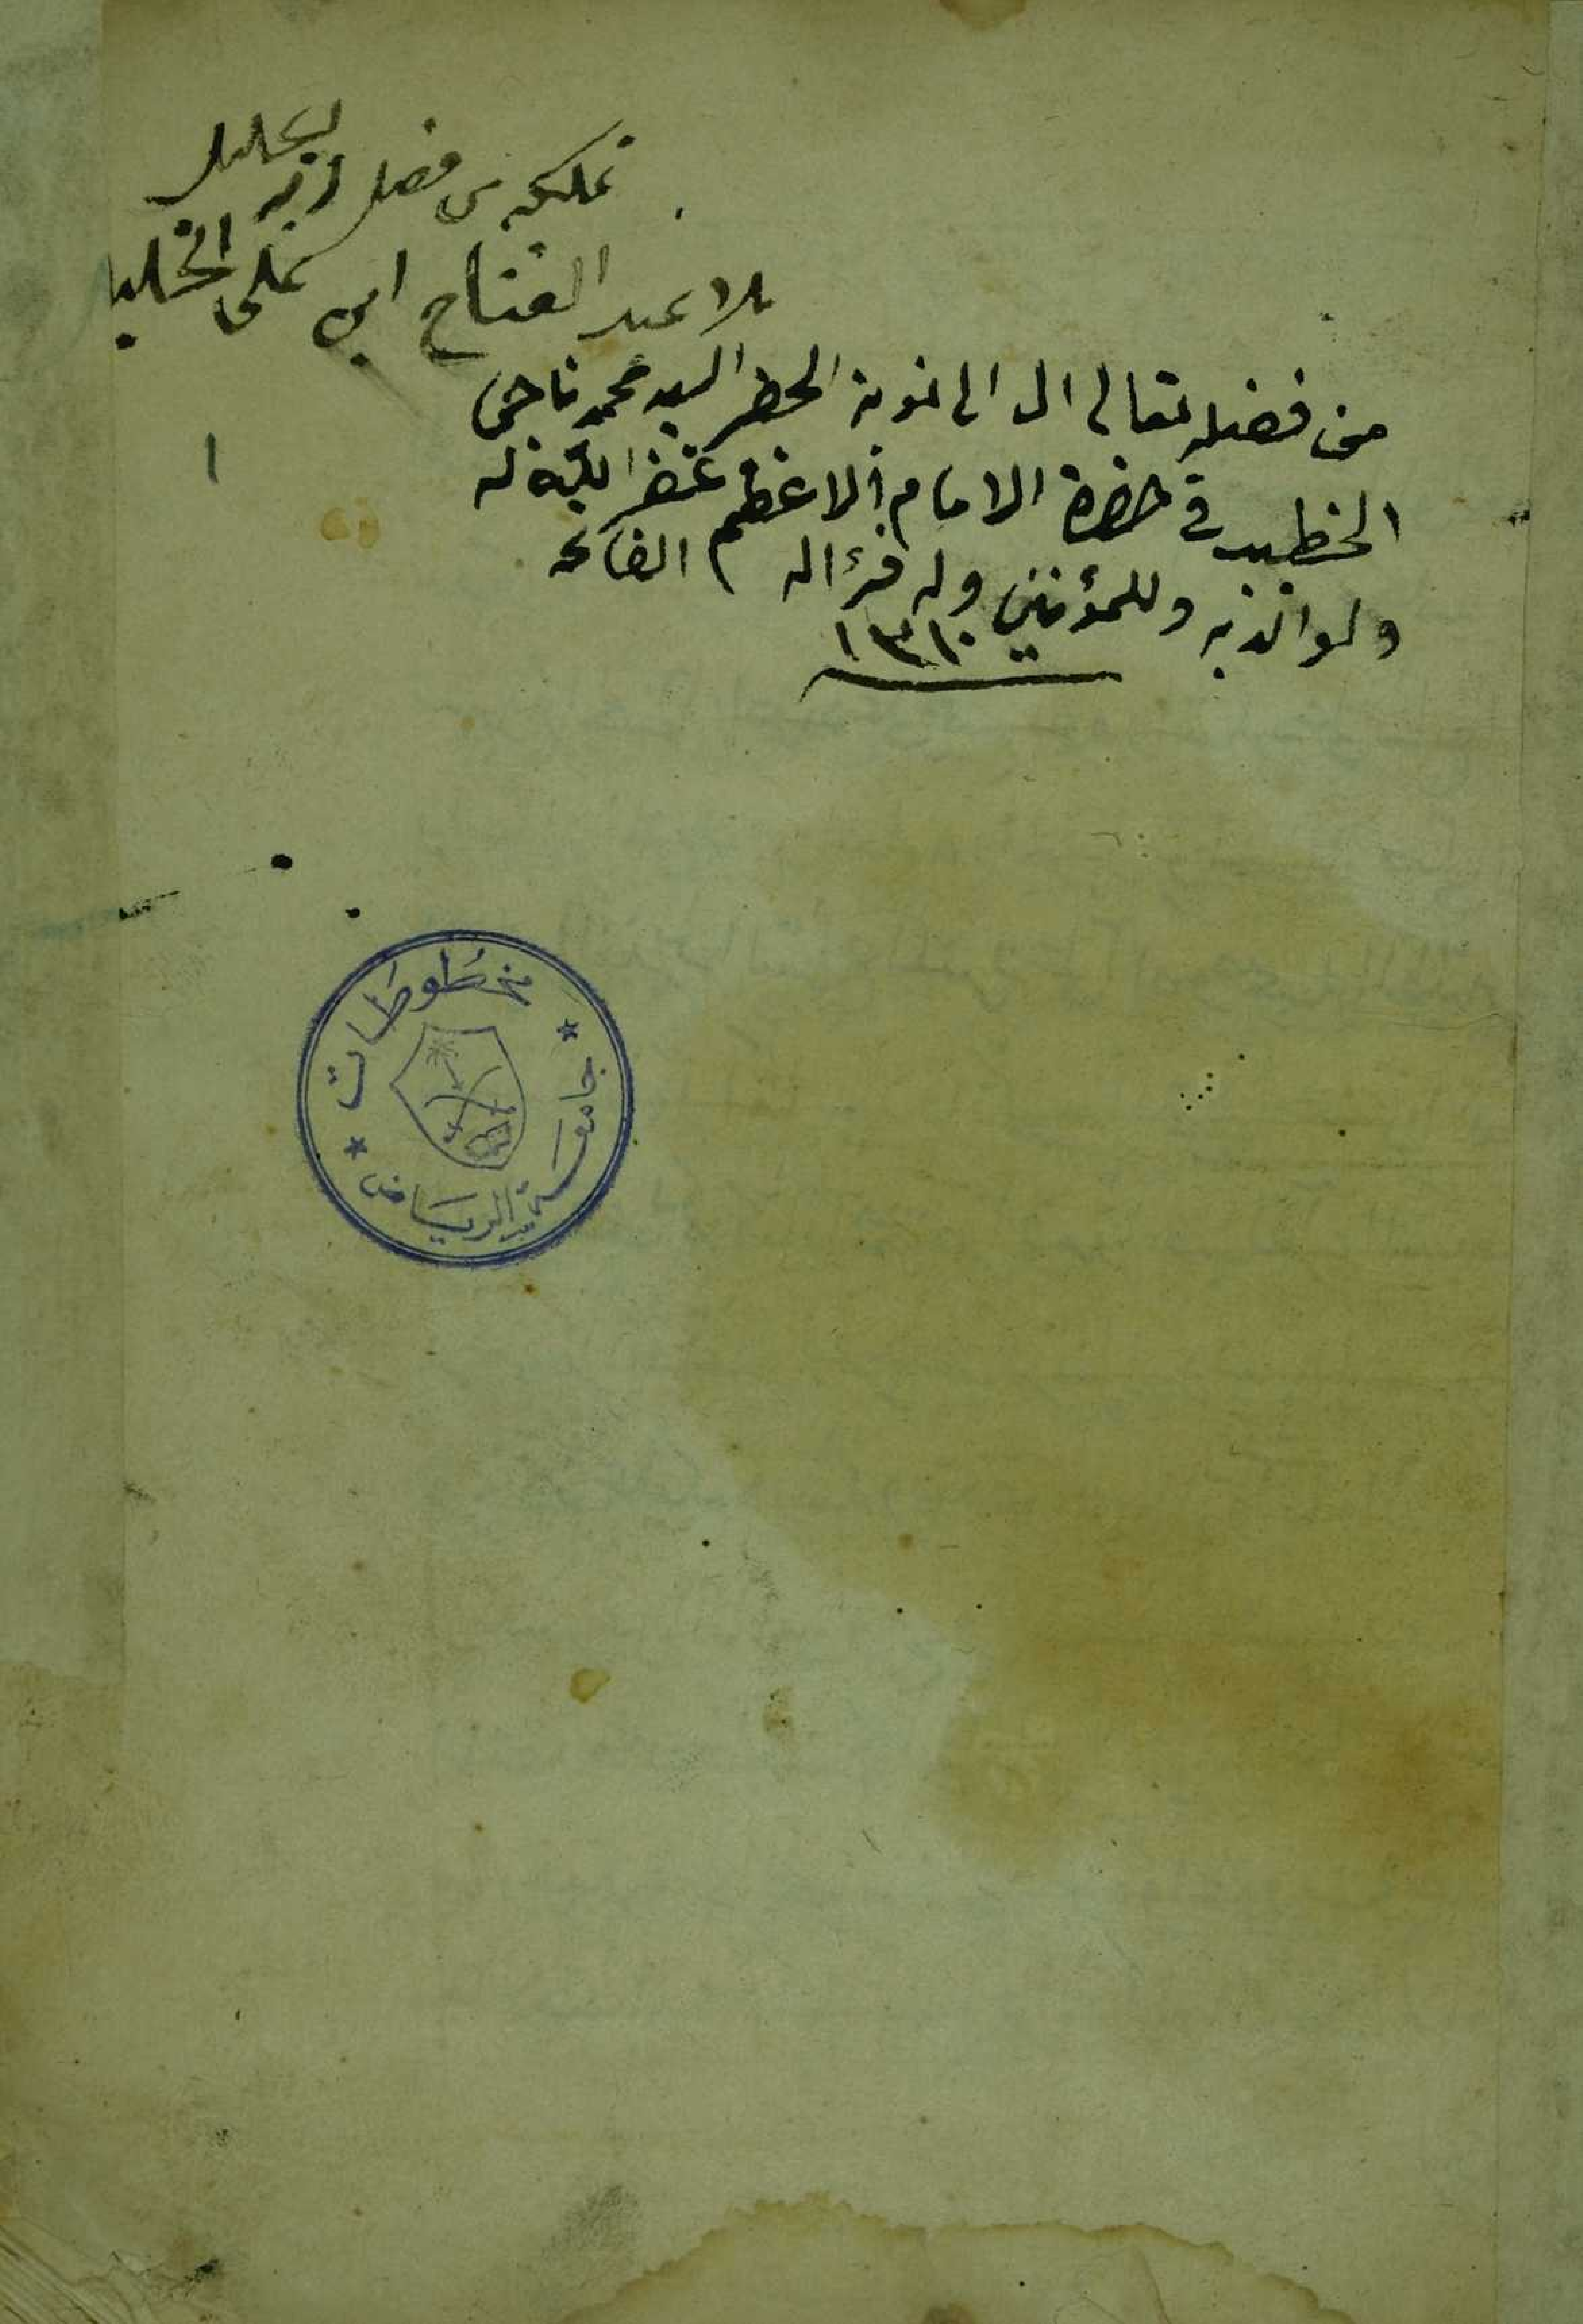 تملكه من فضل ربه الجليل
ملا عبد الفتاح ابن علي
من فضله تعالى ال الى نوبة الحضر السيد محمد ناجي
الخطيب في حضرة الامام الاعظم غفر الله له
ولوالديه وللمؤمنين وله قرأ له الفاتحه
١٣١٠
١
مخطوطات
جامعة الرياض